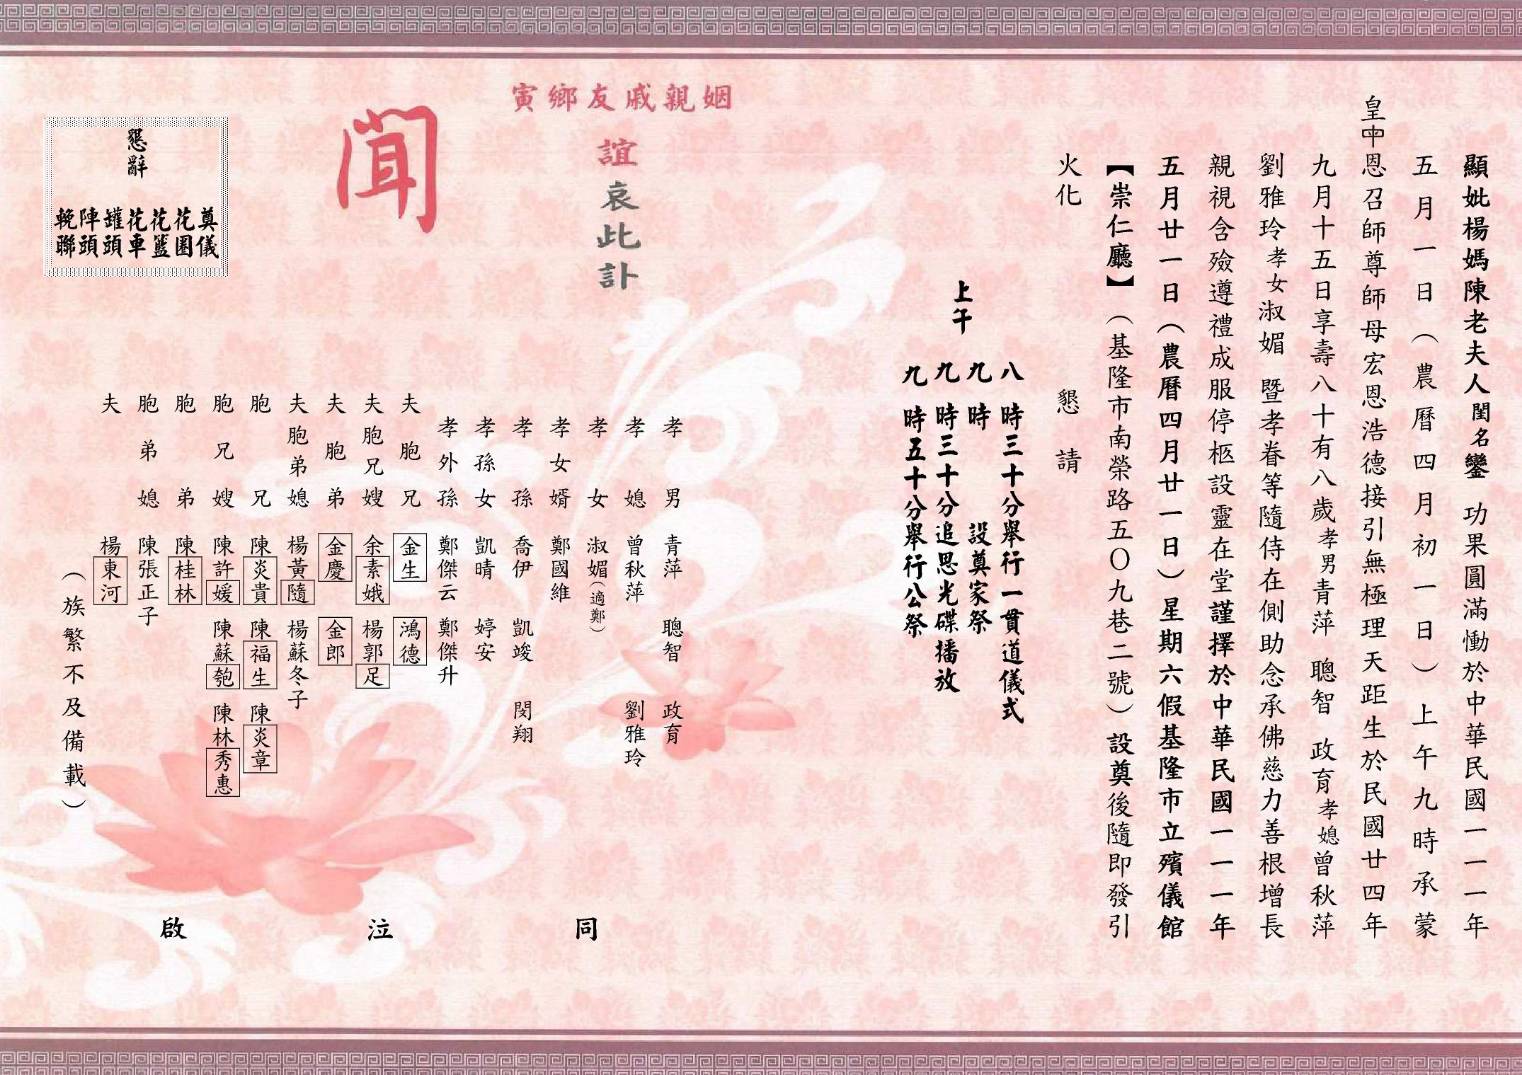 顯妣楊媽陳老夫人閨名鑾 功果圓滿慟於中華民國一一一年
五月一日（農曆四月初一日）上午九時承蒙
皇申恩召師尊師母宏恩浩德接引無極理天距生於民國廿四年
九月十五日享壽八十有八歲孝男青萍 聰智 政育孝媳曾秋萍
劉雅玲孝女淑媚 暨孝眷等隨侍在側助念承佛慈力善根增長
親視含殮遵禮成服停柩設靈在堂謹擇於中華民國一一一年
五月廿一日（農曆四月廿一日）星期六假基隆市立殯儀館
【崇仁廳】（基隆市南榮路五０九巷二號）設奠後隨即發引
火化 懇請
上午
八時三十分舉行一貫道儀式
九時 設奠家祭
九時三十分追思光碟播放
九時五十分舉行公祭
姻親戚友鄉寅
誼哀此訃
聞
孝男 青萍 聰智 政育
孝媳 曾秋萍 劉雅玲
孝女 淑媚（適鄭）
孝女婿 鄭國維
孝孫 喬伊 凱竣 閔翔
孝孫女 凱晴 婷安
孝外孫 鄭傑云 鄭傑升
夫胞兄 金生 鴻德
夫胞兄嫂 余素娥 楊郭足
夫胞弟 金慶 金郎
夫胞弟媳 楊黃隨 楊蘇冬子
胞兄 陳炎貴 陳福生 陳炎章
胞兄嫂 陳許媛 陳蘇匏 陳林秀惠
胞弟 陳桂林
胞弟媳 陳張正子
夫 楊東河
（族繁不及備載）
同泣啟
懇辭
奠儀
花圈
花籃
花車
罐頭
陣頭
輓聯